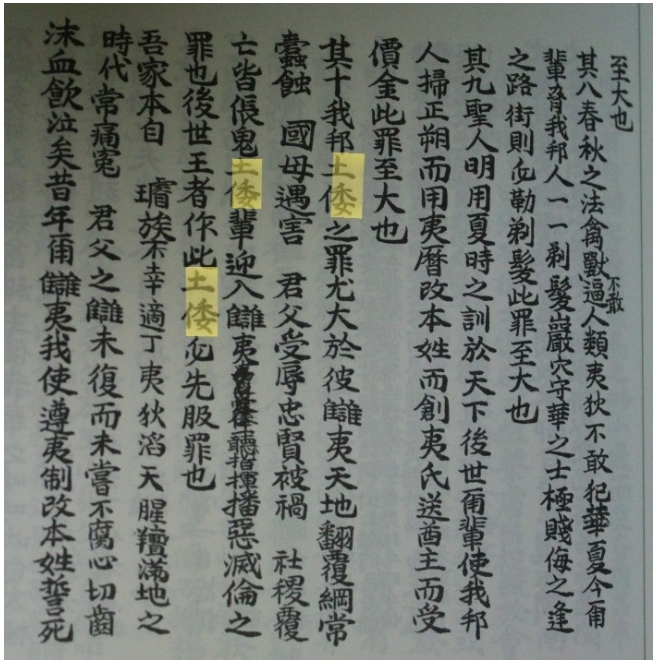 至大也
其八春秋之法禽獸不敢逼人類夷狄不敢犯華夏今爾
輩脅我邦人一一剃髮巖穴守華之士極賤侮之逢
之路街則必勒剃髮此罪至大也
其九聖人明用夏時之訓於天下後世爾輩使我邦
人掃正朔而用夷曆改本姓而創夷氏送酋主而受
價金此罪至大也
其十我邦土倭之罪尤大於彼讎夷天地翻覆綱常
蠹蝕 國母遇害 君父受辱忠賢被禍 社稷覆
亡皆倀鬼土倭輩迎入讎夷聽指揮播惡滅倫之
罪也後世王者作此土倭必先服罪也
吾家本自 璿族不幸適丁夷狄滔天腥羶滿地之
時代常痛冤 君父之讎未復而未嘗不腐心切齒
沫血飲泣矣昔年爾讎夷我使遵夷制改本姓誓死